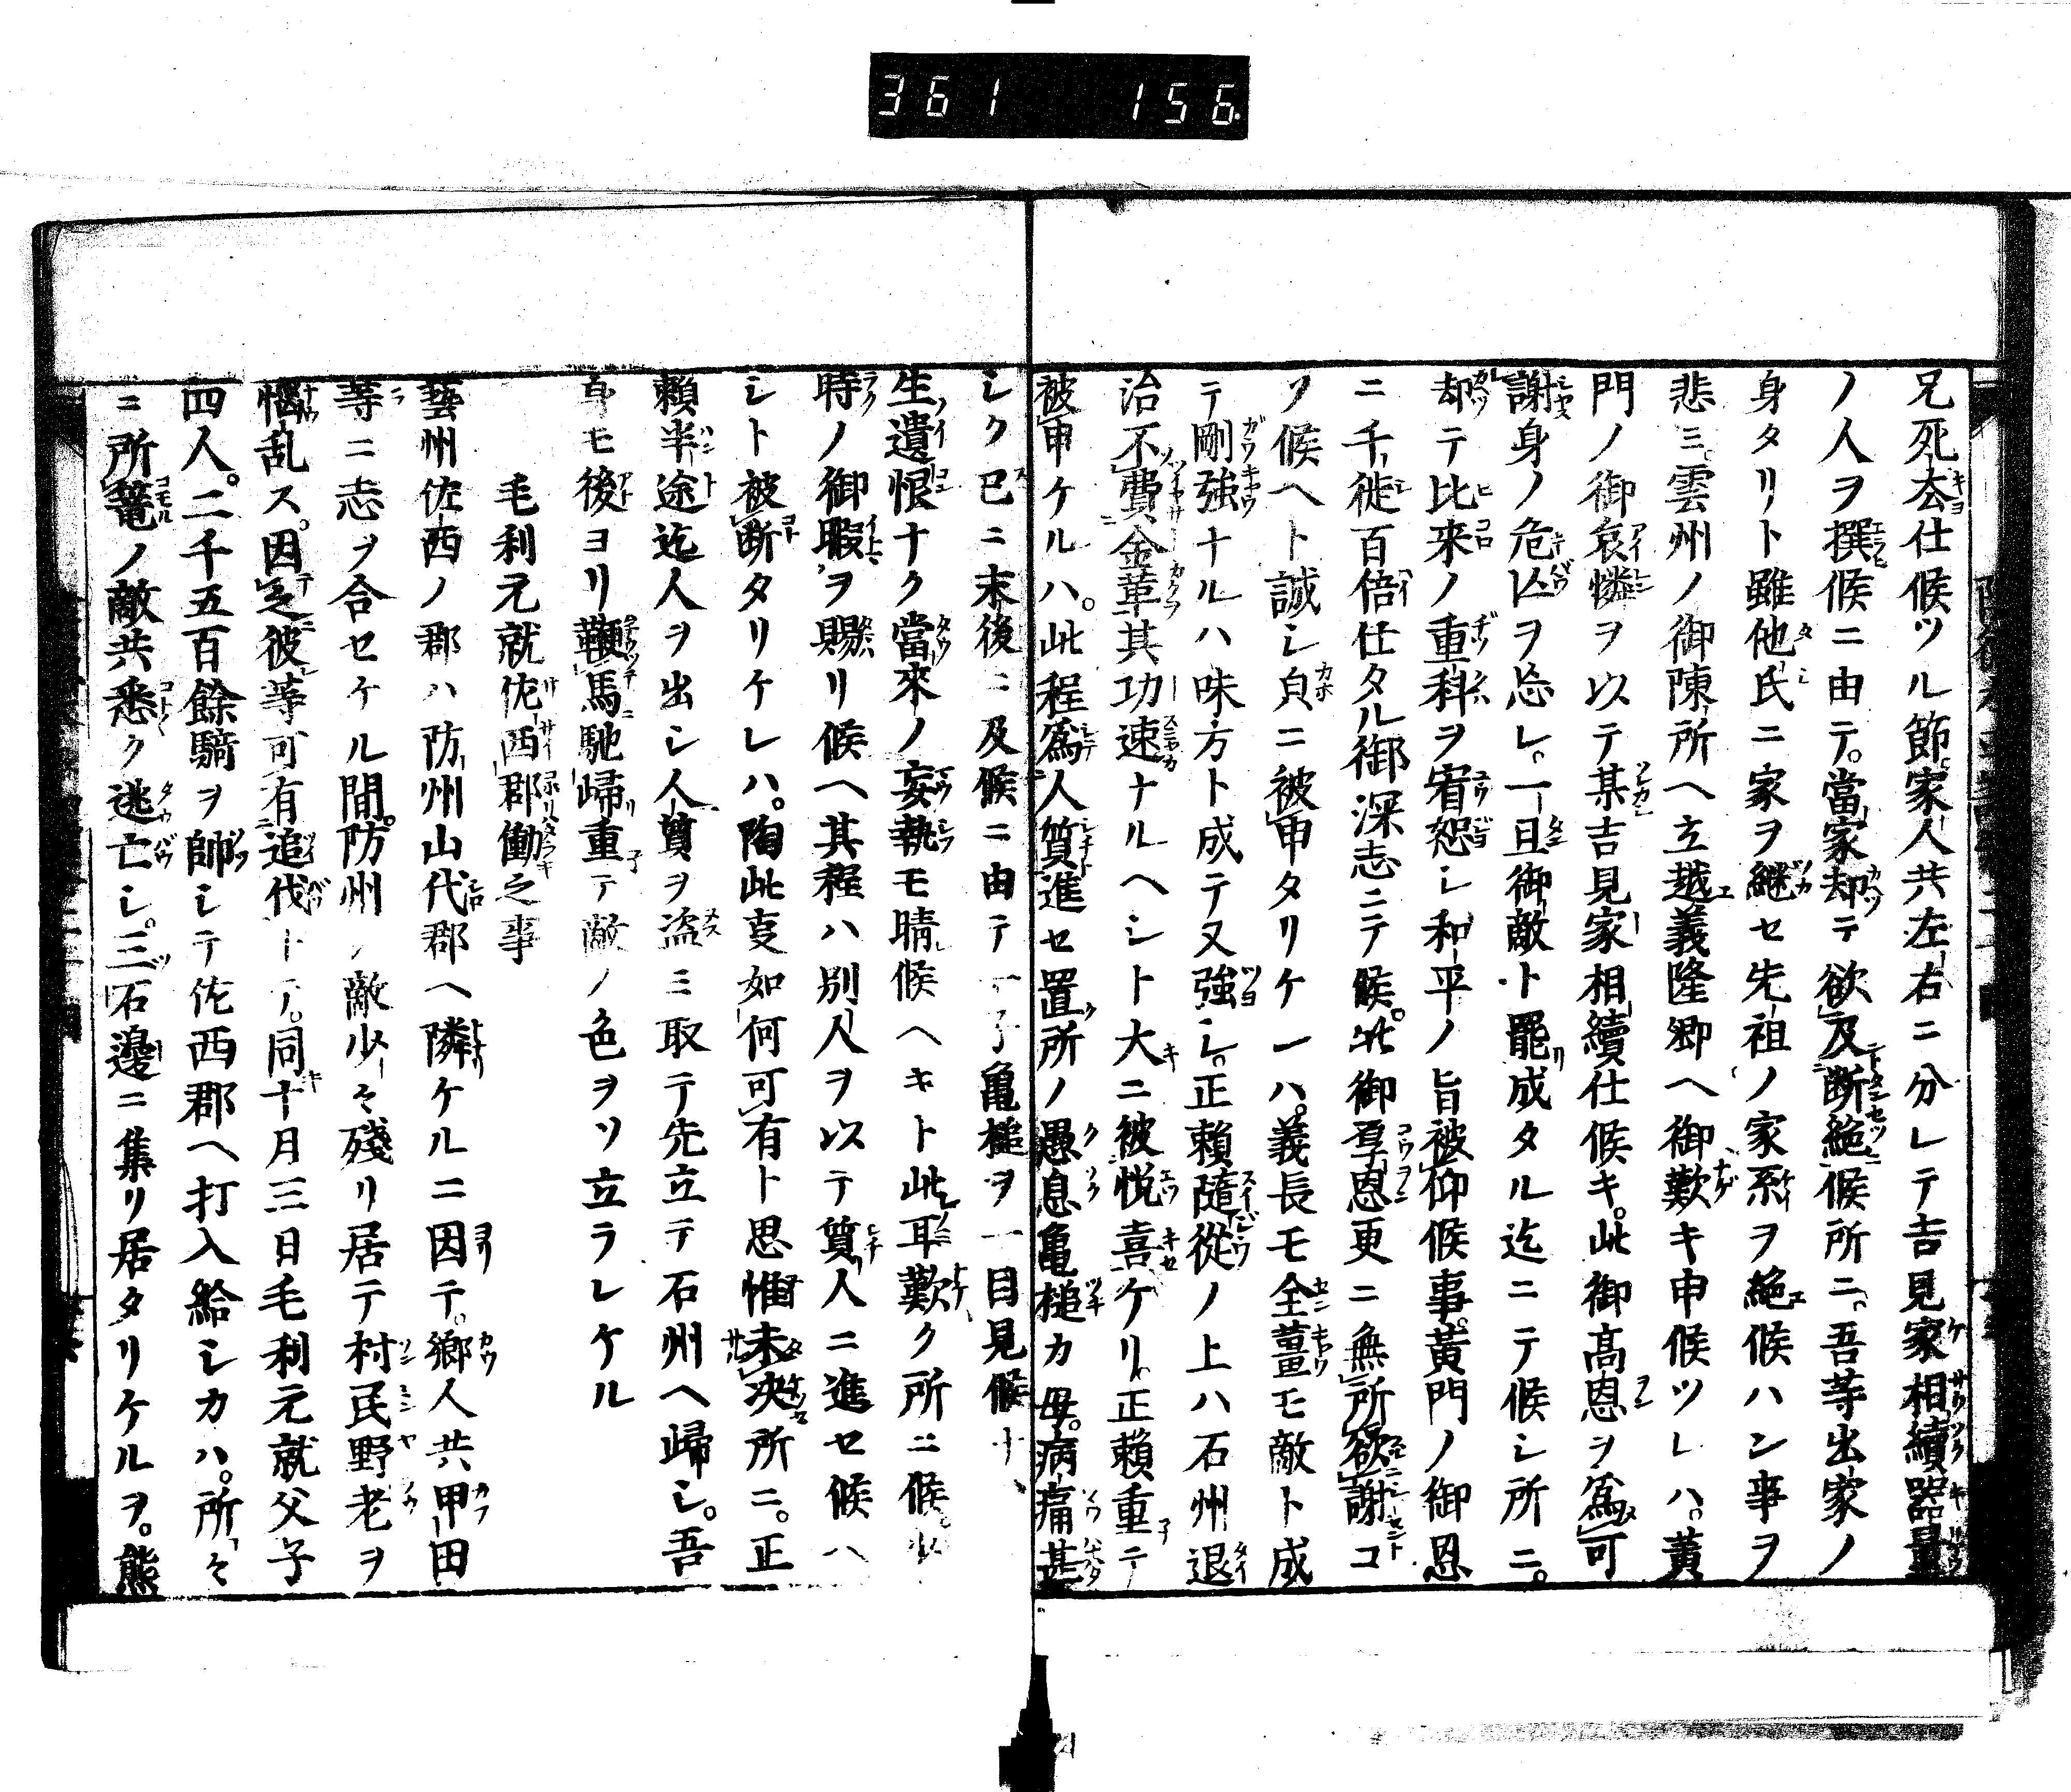 361 156
兄死去仕候ツル節。家人共左右ニ分レテ吉見家相續器量
ノ人ヲ撰候ニ由テ。當家却テ欲及断絶候所ニ。吾等出家ノ
身タリト雖他氏ニ家ヲ継セ先祖ノ家系ヲ絶候ハン事ヲ
悲ミ。雲州ノ御陳所ヘ立越義隆卿ヘ御歎キ申候ツレハ。黄
門ノ御哀憐ヲ以テ某吉見家相續仕候キ。此御高恩ヲ為可
謝身ノ危亡ヲ忘レ。一旦御敵ト罷成タル迄ニテ候シ所ニ。
却テ比来ノ重科ヲ宥恕シ和平ノ旨被仰候事。黄門ノ御恩
ニ千徙百倍仕タル御深志ニテ候。此御厚恩更ニ無所欲謝コ
ソ候ヘト誠シ皃ニ被申タリケレハ。義長モ全薑モ敵ト成
テ剛強ナルハ味方ト成テ又強シ。正頼隨從ノ上ハ石州退
治不費金革其功速ナルヘシト大ニ被悦喜ケリ。正頼重テ
被申ケルハ。此程為人質進セ置所ノ愚息亀槌カ母。病痛甚
シク已ニ末後ニ及候ニ由テ一子亀槌ヲ一目見候ナハ
生遺恨ナク當來ノ妄執モ晴候ヘキト此耳歎ク所ニ候。少
時ノ御暇ヲ賜リ候ヘ其程ハ別人ヲ以テ質人ニ進セ候ハ
ント被断タリケレハ。陶此夏如何可有ト思惟未决所ニ。正
頼半途迄人ヲ出シ人質ヲ盗ミ取テ先立テ石州ヘ歸シ。吾
身モ後ヨリ鞭馬馳歸重テ敵ノ色ヲソ立ラレケル
毛利元就佐西郡働之事
藝州佐西ノ郡ハ防州山代郡ヘ隣ケルニ因テ。郷人共甲田
等ニ志ヲ合セケル間。防州ノ敵少々殘リ居テ村民野老ヲ
惱乱ス。因之彼等可有追伐トテ。同十月三日毛利元就父子
四人。二千五百餘騎ヲ帥シテ佐西郡ヘ打入給シカハ。所々
ニ所篭ノ敵共悉ク逃亡シ。三石邊ニ集リ居タリケルヲ。熊